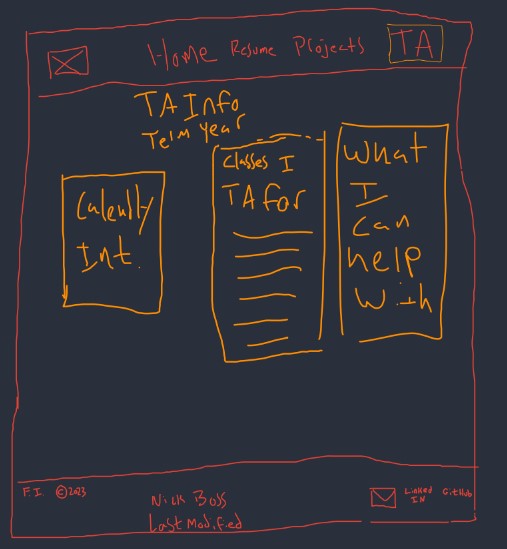 Home Resume Projects TA
TA Info
Term Year
Calendly
Int.
Classes I
TA for
What
I
can
help
with
F.I. ©2023
Nick Boss
Last Modified
Linked
IN
GitHub